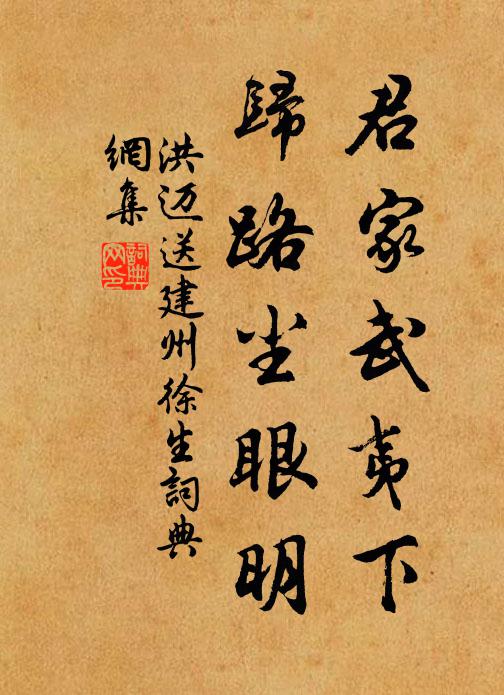 君家武夷下
歸路尘眼明
洪迈送建州徐生詞典
網集
詞典
网印